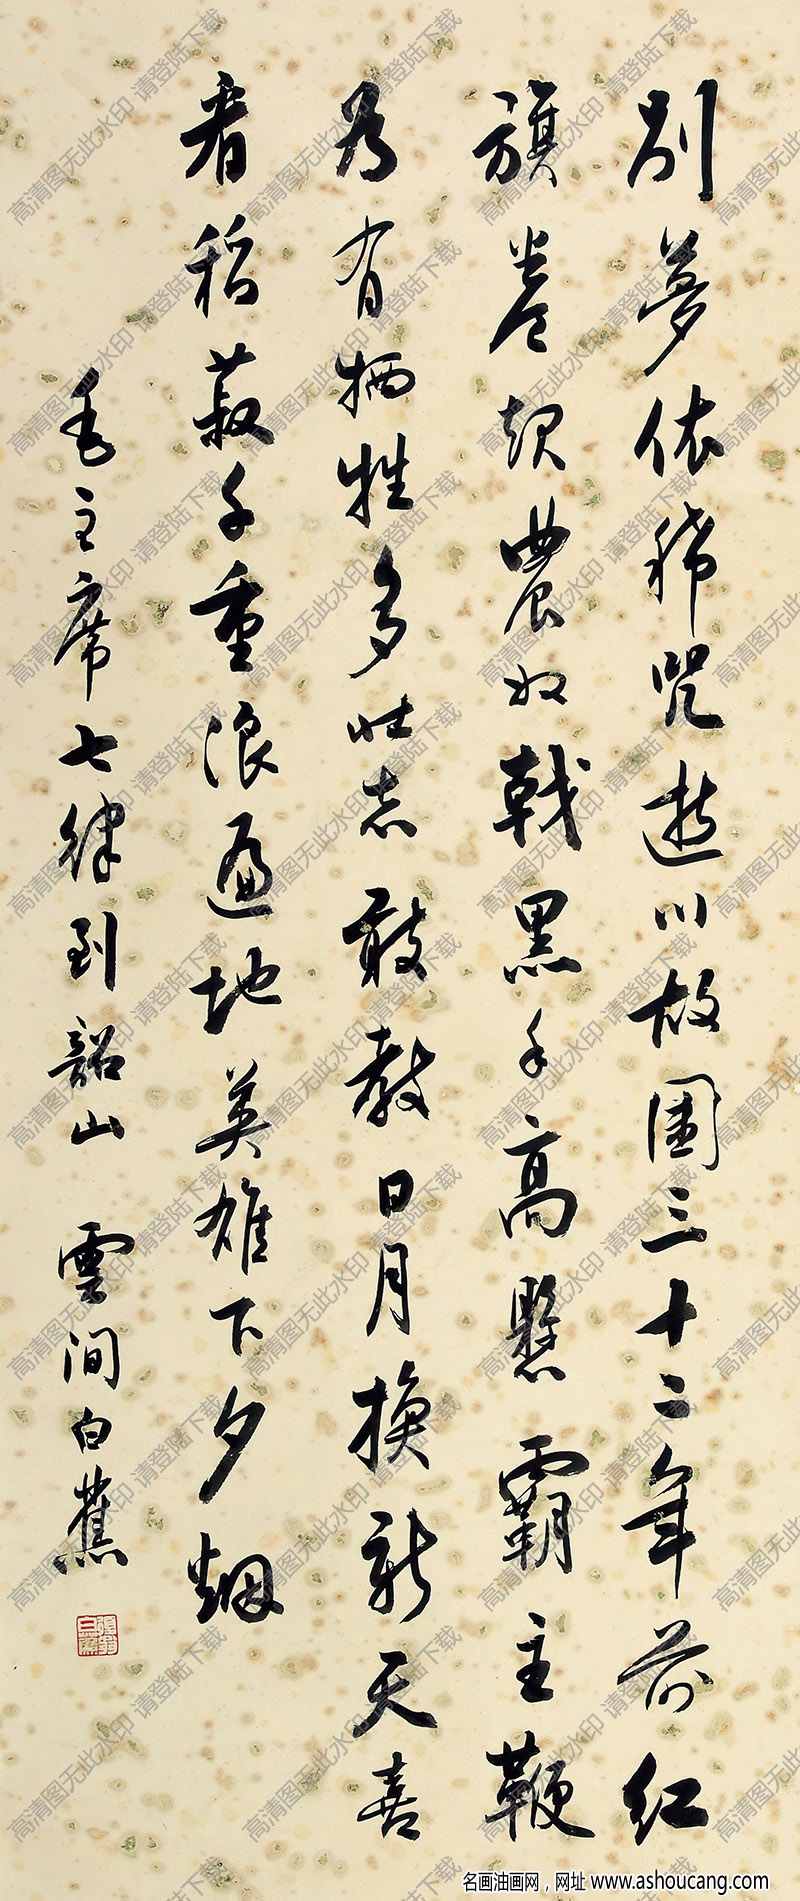 别夢依稀咒逝川故園三十二年前红
旗卷起農奴戟黑手高懸霸主鞭
为有牺牲多壮志敢教日月换新天喜
看稻菽千重浪遍地英雄下夕烟
毛主席七律到韶山 雲间白蕉
高清图无此水印 请登陆下载
名画油画网，网址 www.ashoucang.com